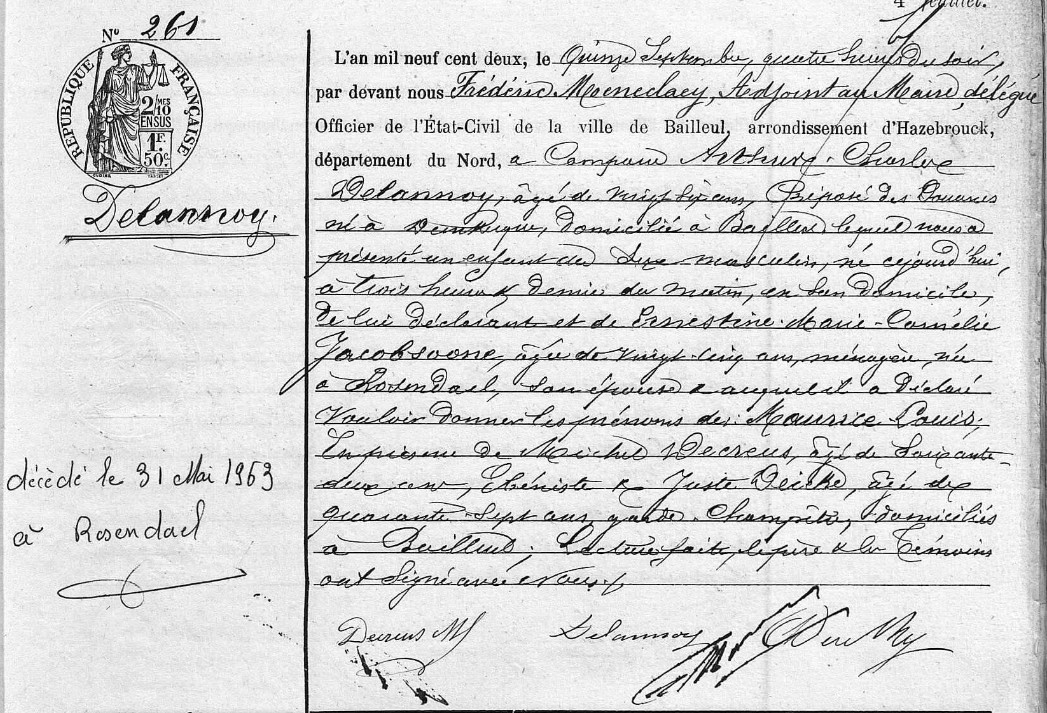 4 feuillet.
N° 261
RÉPUBLIQUE FRANÇAISE
2 MES
10
EN SUS
1F.
50c
Delannoy.
L'an mil neuf cent deux, le Quinze Septembre, quatre heures du soir,
par devant nous Frédéric, Adjoint au Maire, délégué
Officier de l'État-Civil de la ville de Bailleul, arrondissement d'Hazebrouck,
département du Nord, a Comparu Arthur-Charles
Delannoy, âgé de vingt ans, Préposé des Douanes
né à Dunkerque, domicilié à Bailleul lequel nous a
présenté un enfant du Sexe masculin, né cejourd'hui,
à trois heures & demie du matin, en son domicile,
de lui déclarant et de Ernestine-Marie-Cornélie
Jacobsoone, âgée de vingt-cinq ans, ménagère, née
à Rosendael, son épouse & auquel il a déclaré
vouloir donner les prénoms de: Maurice Louis;
En présence de Michel Decreus, âgé de Soixante-
deux ans, Ebéniste & Juste, âgé de
quarante-Sept ans, garde-Champêtre, domiciliés
à Bailleul; Lecture faite, le père & les Témoins
ont Signé avec Nous./.
décédé le 31 Mai 1963
à Rosendael
Decreus M Delannoy